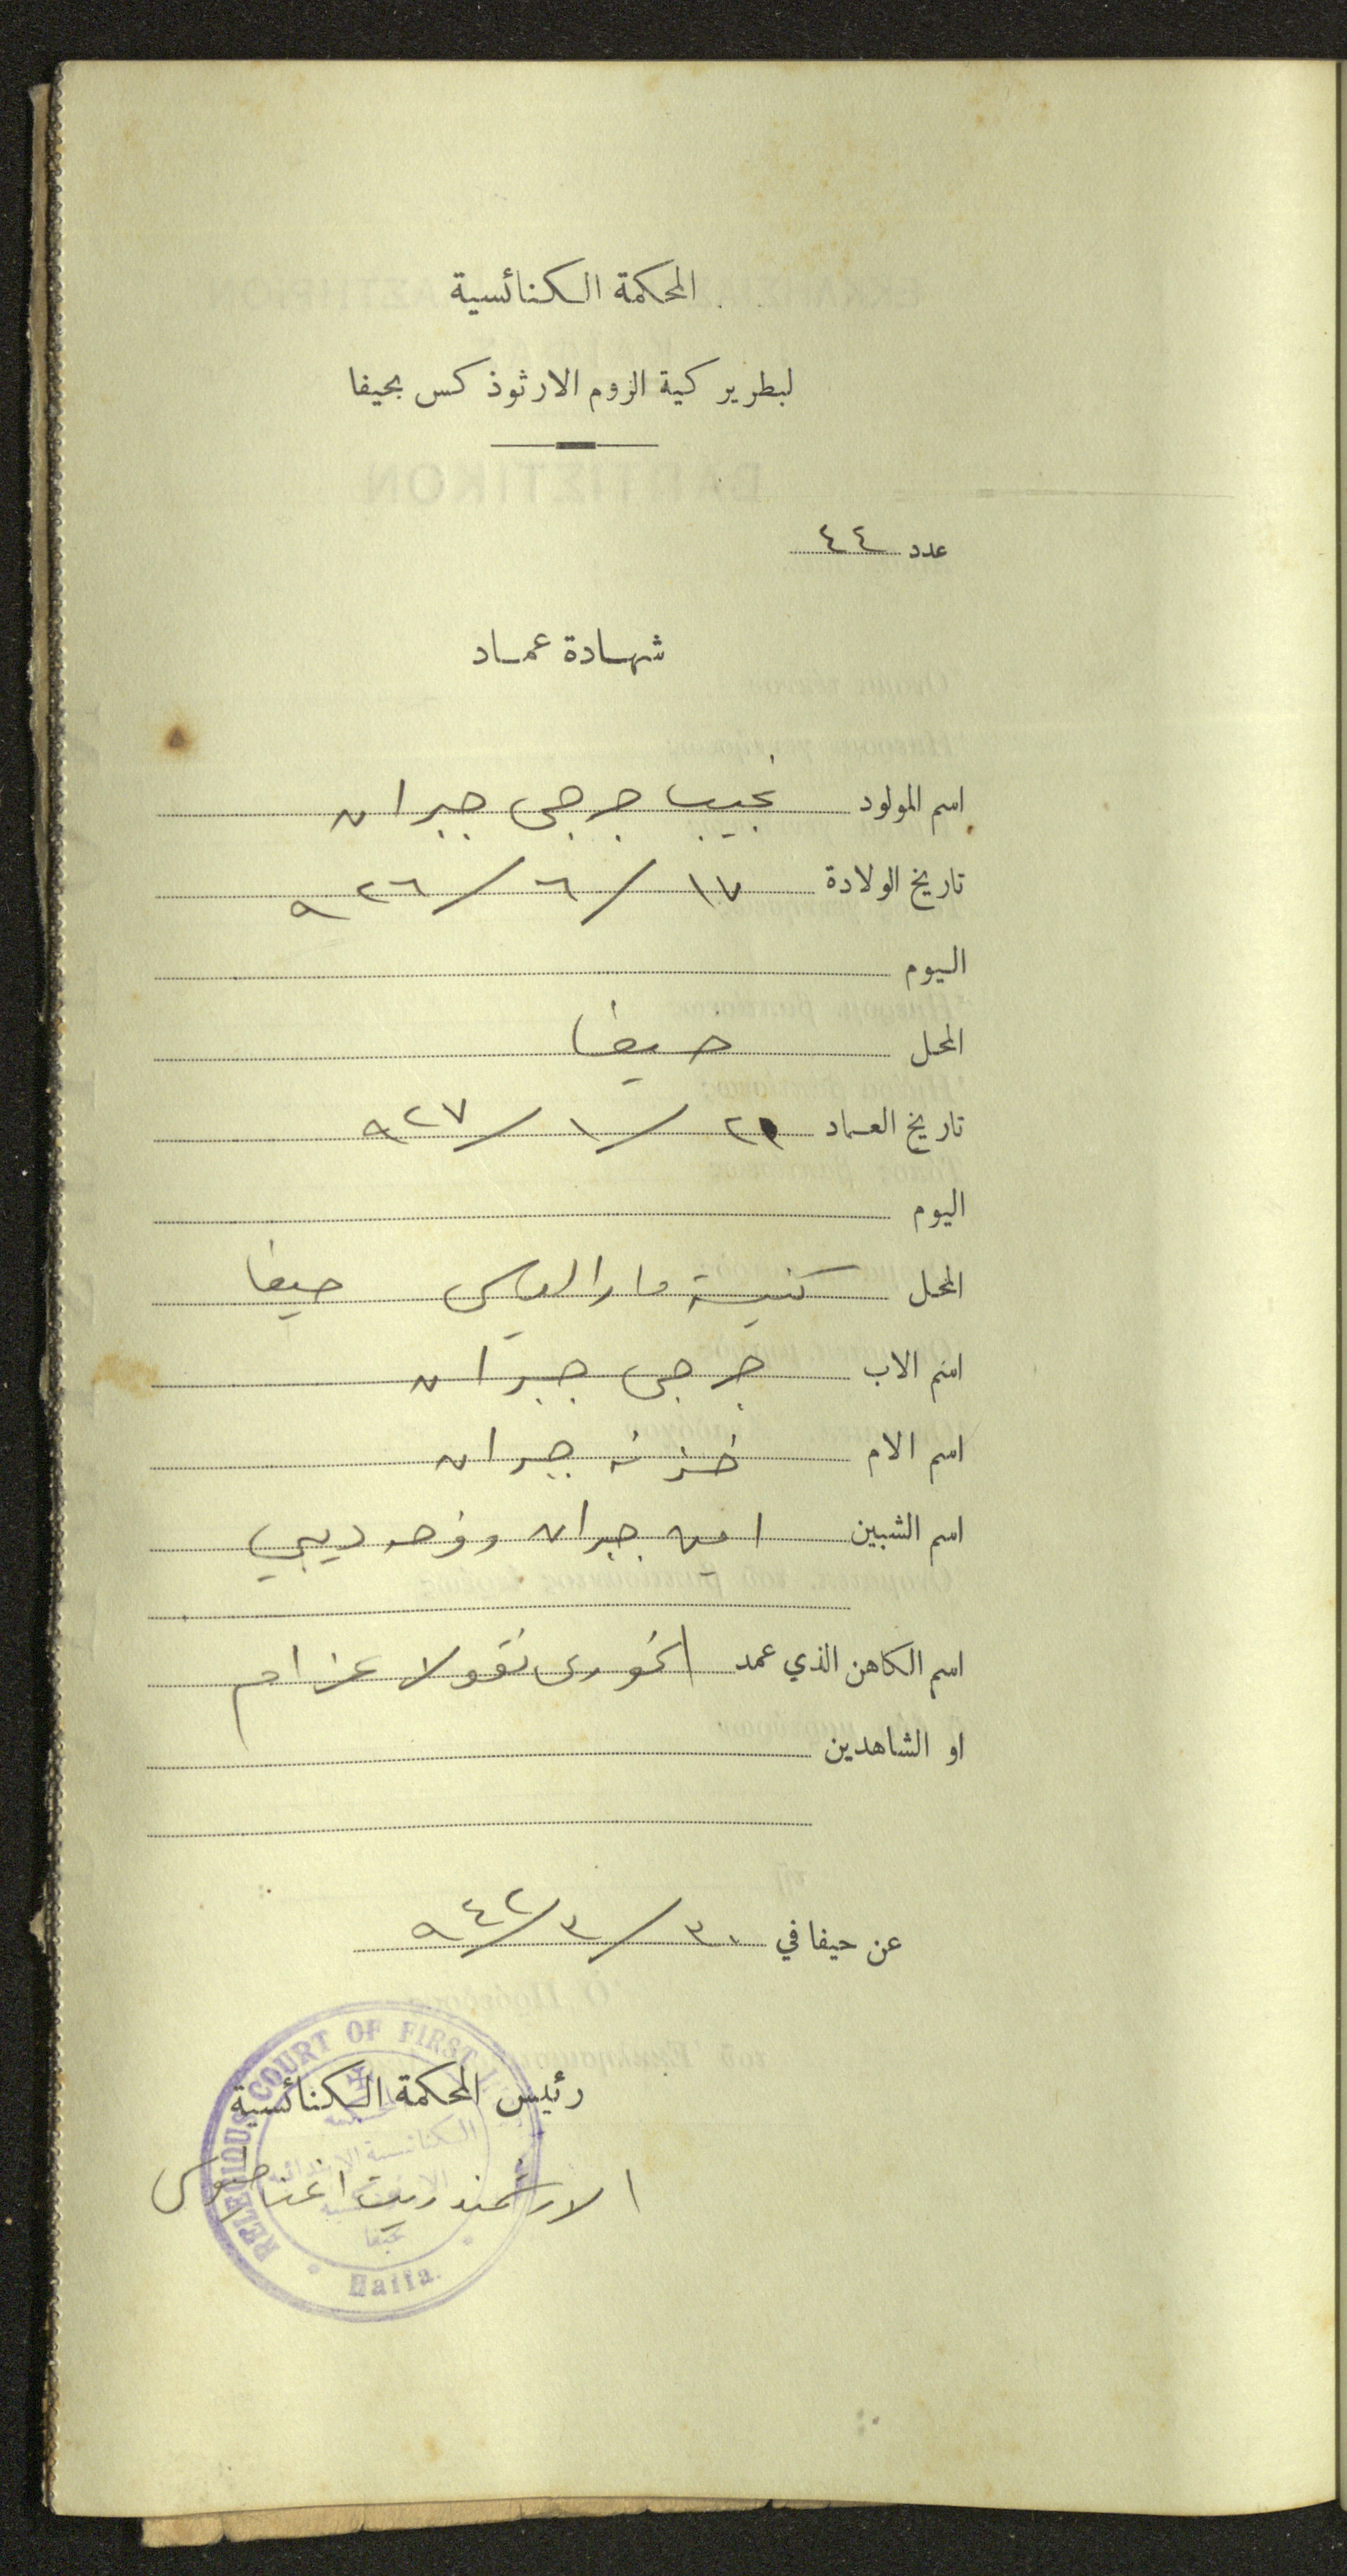 المحكمة الكنائسية
لبطريركية الروم الارثوذكس بحيفا
عدد ٤٤
شهادة عماد
اسم المولود نجيب جرجي جبران
تاريخ الولادة ١٧/٦/٩٢٦
اليوم
المحل حيفا
تاريخ العماد /١/٩٢٧
اليوم
المحل كنيسة مار الياس حيفا
اسم الاب جرجي جبران
اسم الام خزنه جبران
اسم الشبين امين جبران و ديبي
اسم الكاهن الذي عمد الخوري نقولا عزام
او الشاهدين
عن حيفا في ٣٠/٣/٩٤٢
رئيس المحكمة الكنائسية
الارشمندريت اغناطيوس
RELEGIOUS COURT OF FIRST
الكنائسية الابتدائية
بحيفا
Haifa.